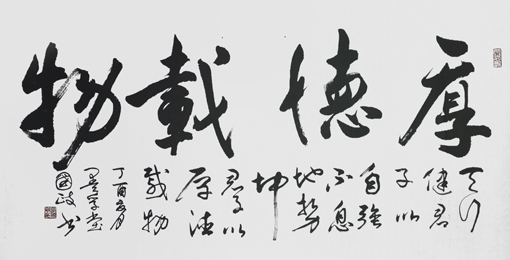 厚德載物
天行
健君
子以
自強
不息
地勢
坤
君子以
厚德
載物
丁酉
國政书